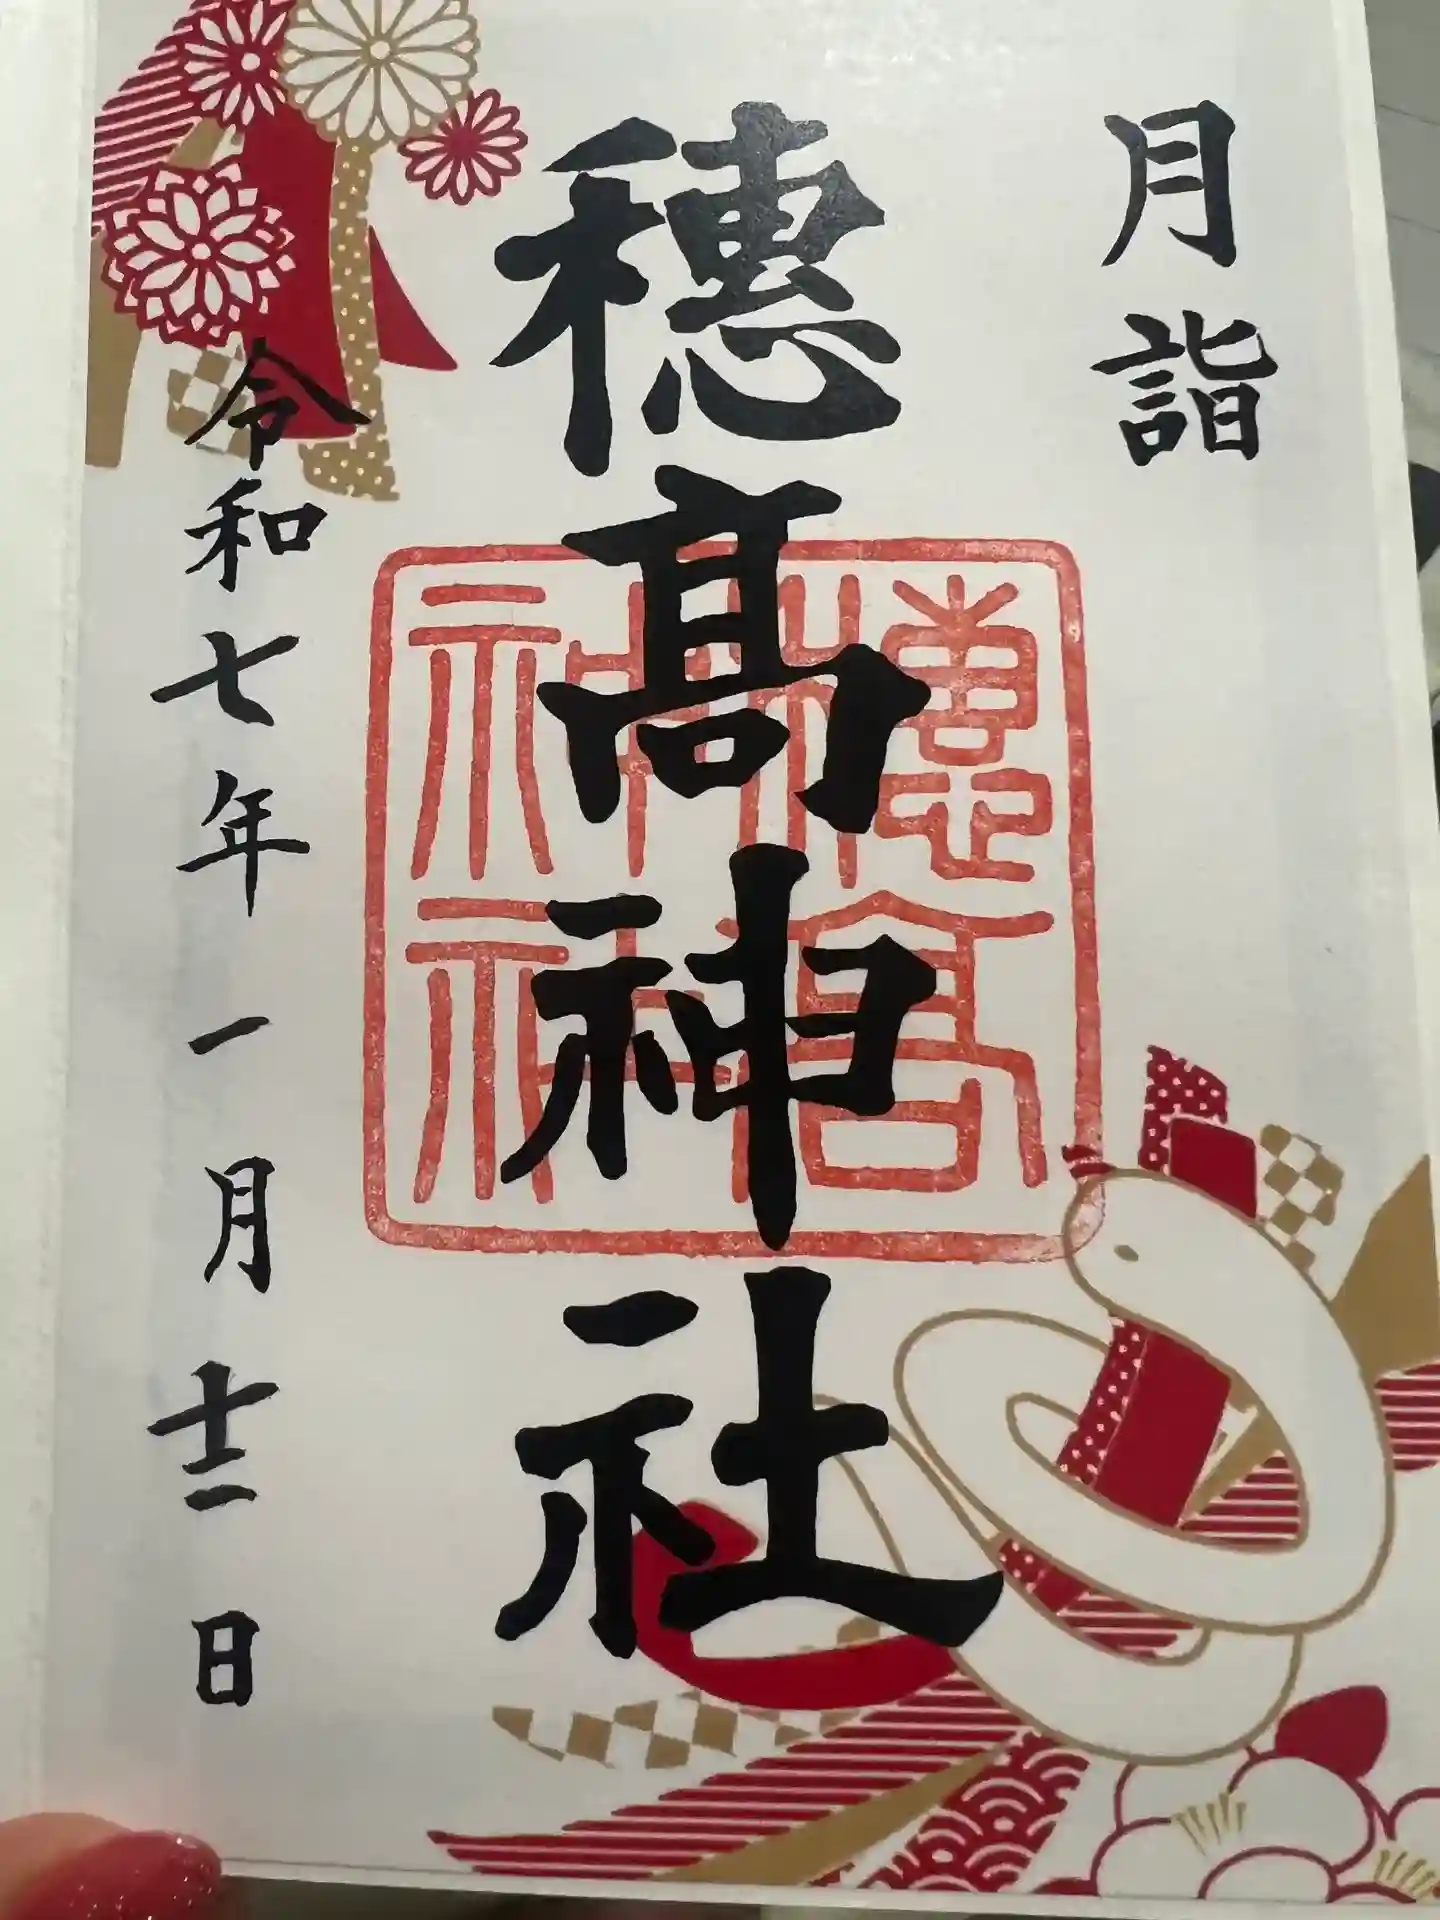 月詣
穗髙神社
令和七年一月十二日
穗高
神社